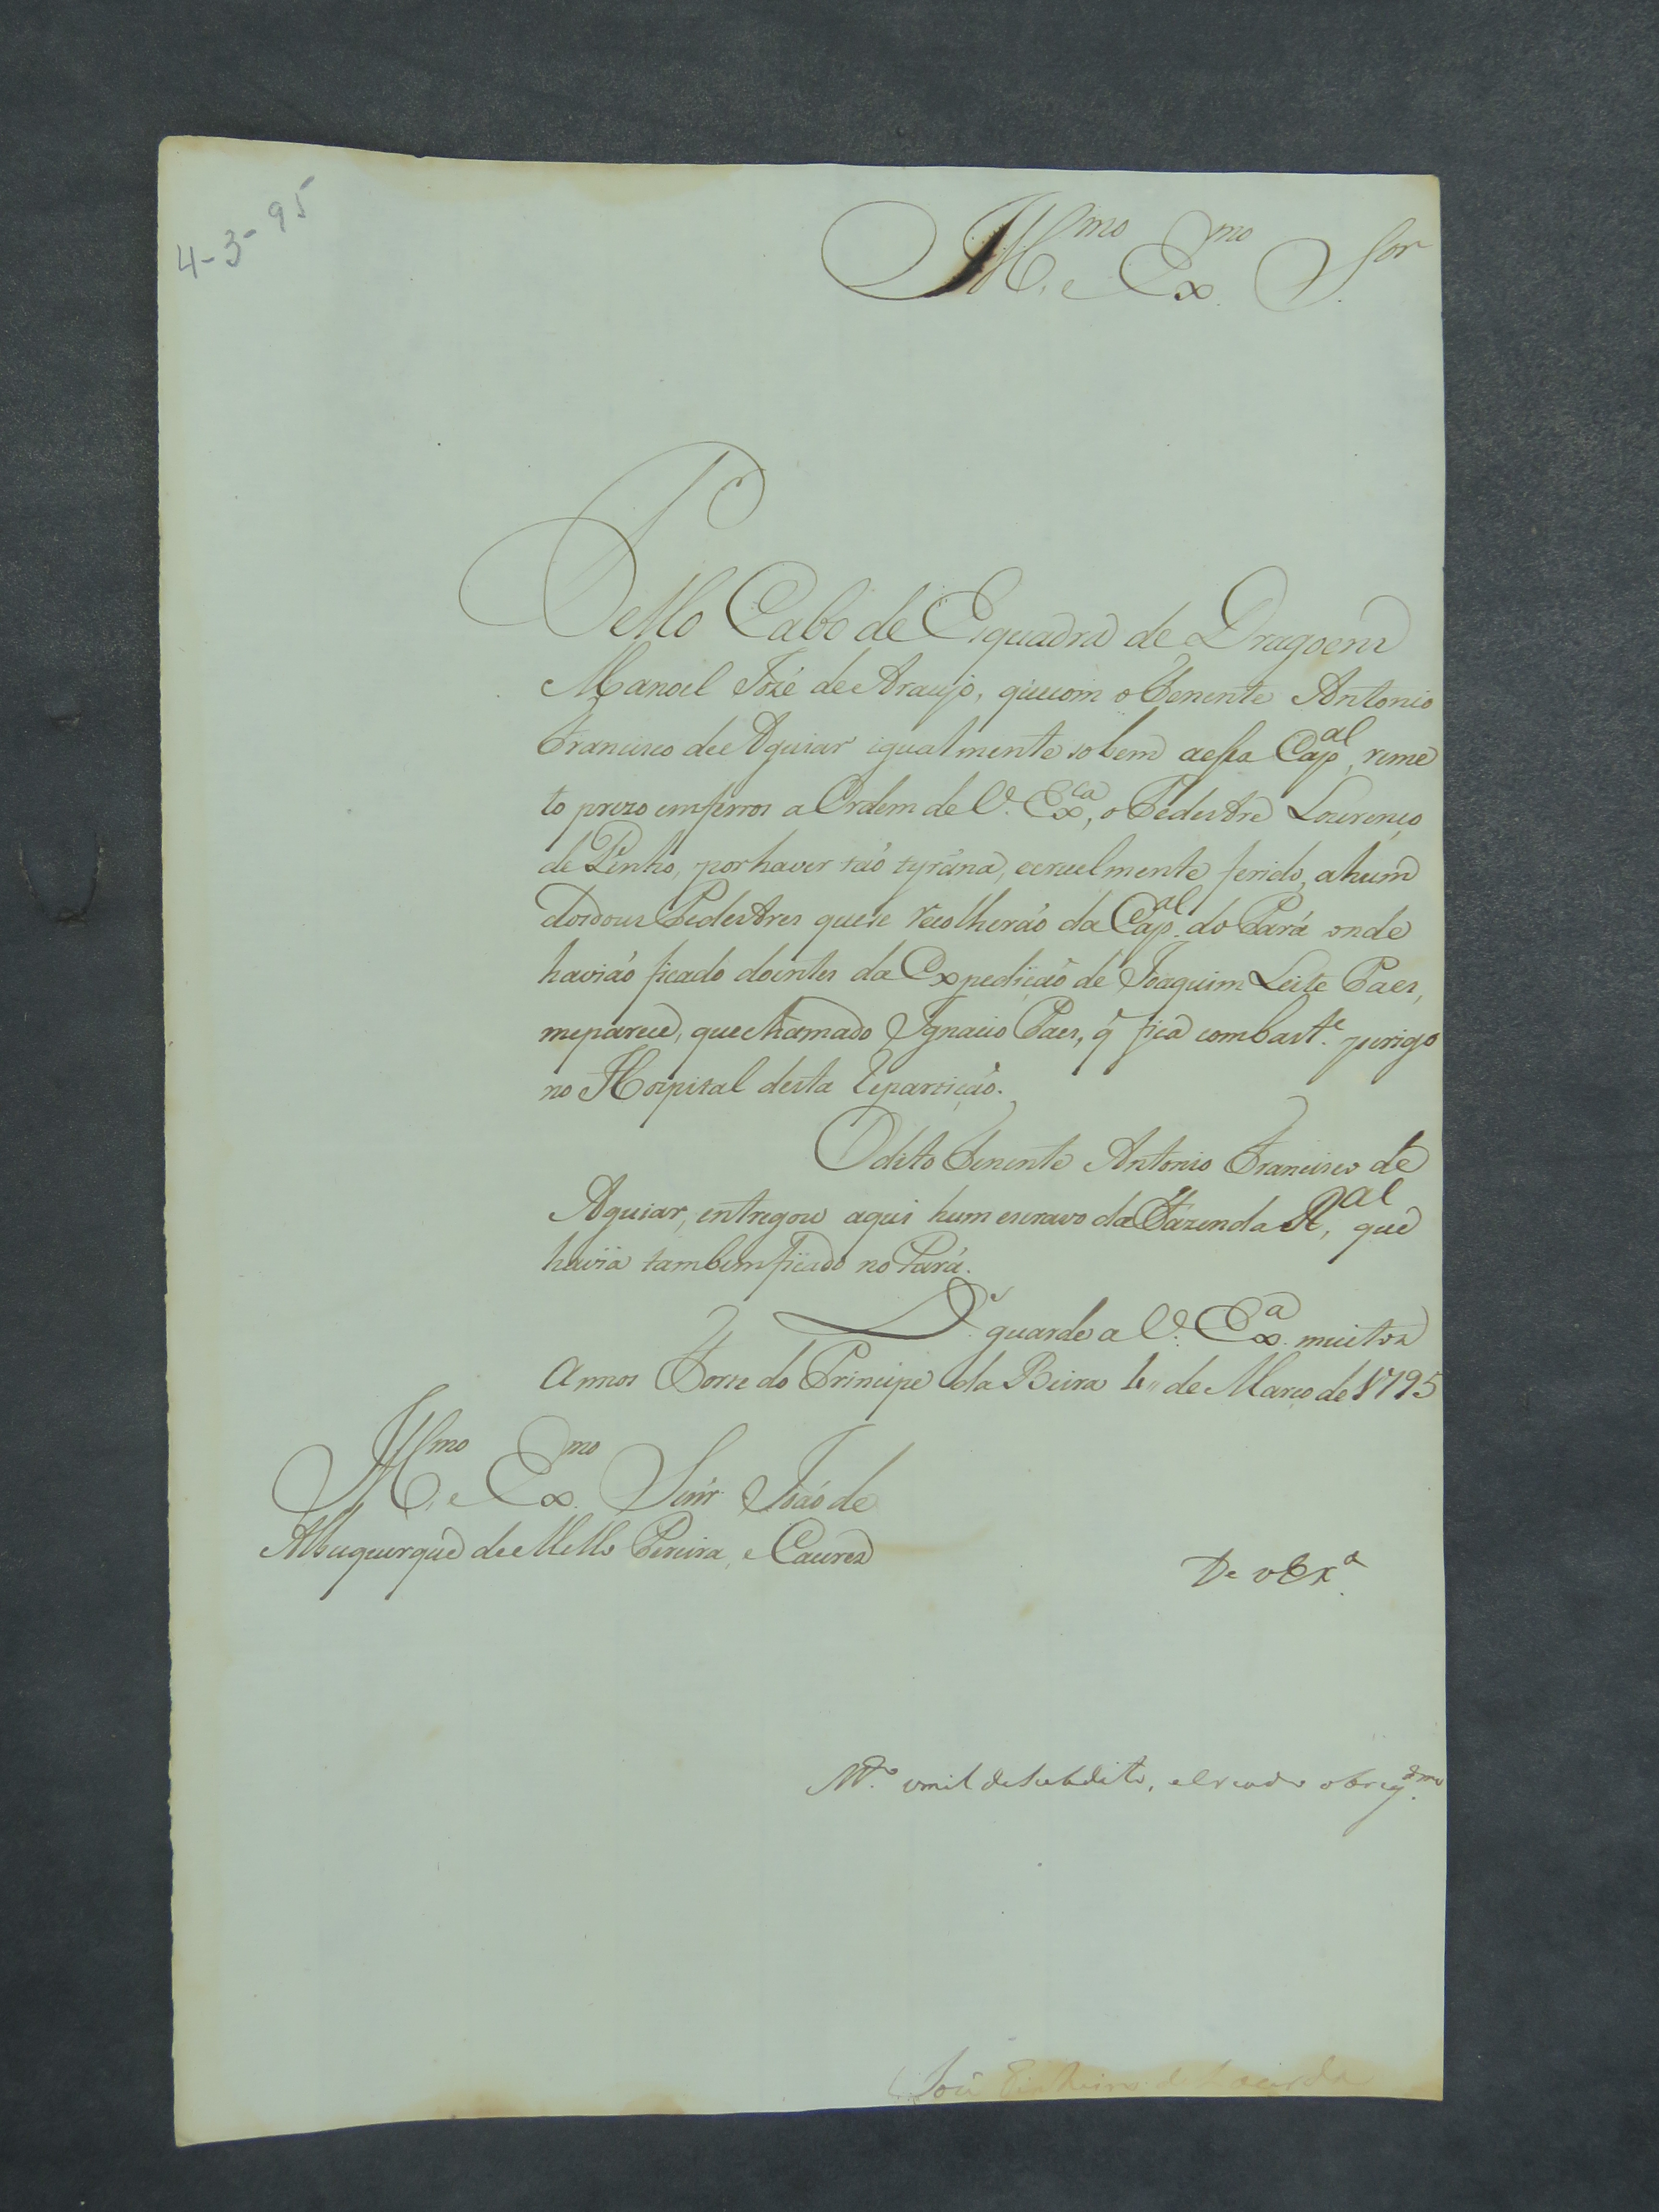 4-3-95
Ill.mo e Ex.mo S.or
Pello Cabo de Esquadra de Dragoens
Manoel Jozé de Araujo, que com o Tenente Antonio
Francisco de Aguiar igualmente sobem a essa Cap.al, reme
to prezo em ferros a Ordem de V. Ex.ca, o Pedestre Lourenço
de Pinho, por haver tão tyrana, e cruelmente ferido, a hum
dos dous Pedestres que se recolherão da Cap.al do Pará onde
havião ficado doentes da Expedição de Joaquim Leite Paes,
me parece, que chamado Ignacio Paes, q̃ fica com bast.e perigo
no Hospital desta Repartição.
O dito Tenente Antonio Francisco de
Aguiar, entregou aqui hum escravo da Fazenda R.al, que
havia tambem ficado no Pará.
D.s guarde a V. Ex.a muitos
Annos Forte do Principe da Beira 4 de Março de 1795
Ill.mo e Ex.mo Senr. João de
Albuquerque de Mello Pereira, e Caceres
De V Ex.a
M.to umilde subdito, e criado obrig.dmo
José Pinheiro de Lacerda